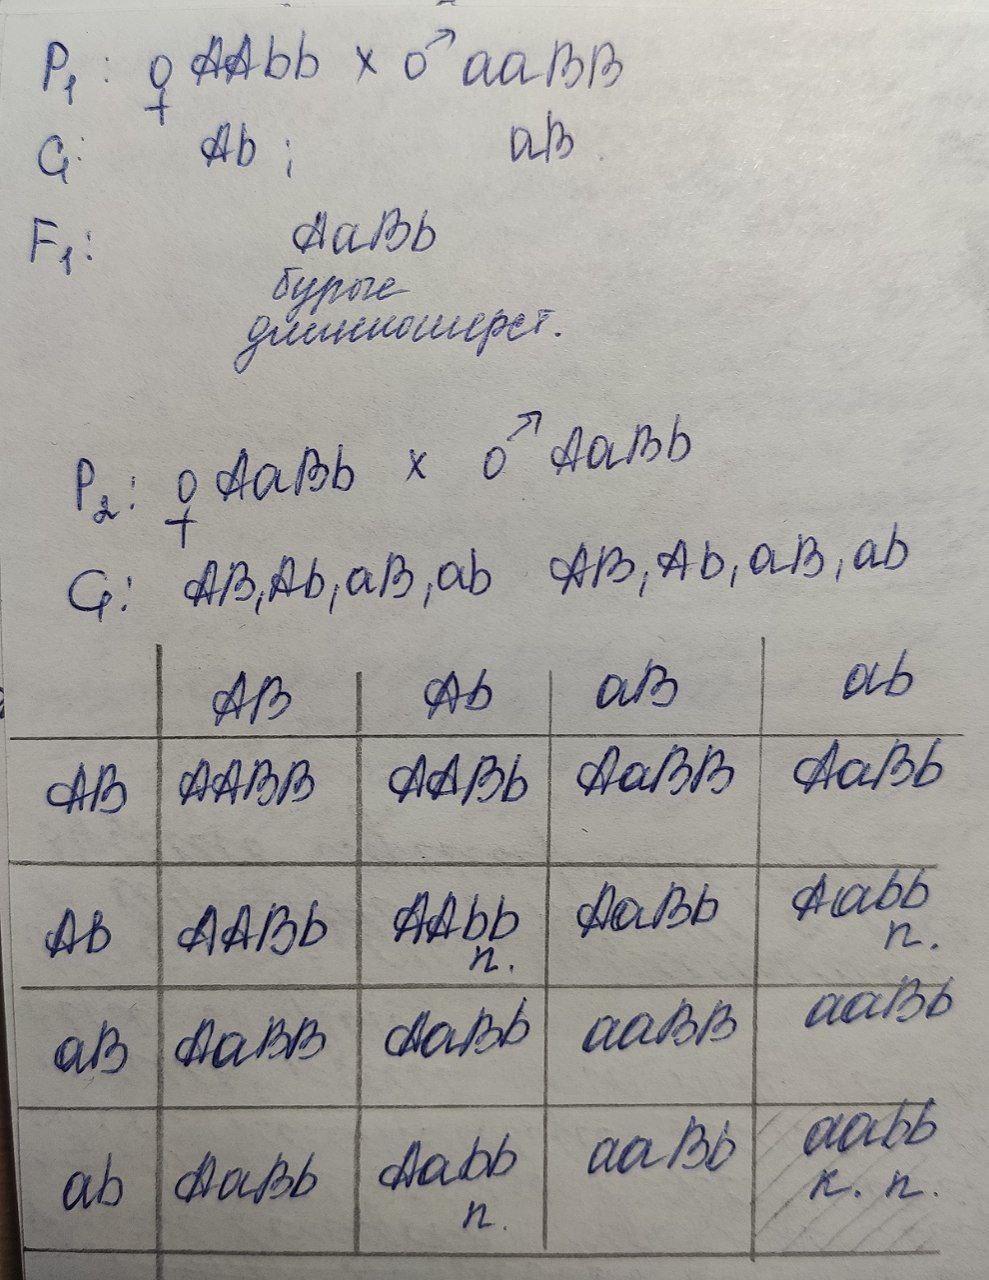 P₁: ♀ AAbb x ♂ aaBB
G: Ab; aB.
F₁: AaBb
бурые
длинношерст.
P₂: ♀ AaBb x ♂ AaBb
G: AB, Ab, aB, ab AB, Ab, aB, ab
AB Ab aB ab
AB AABB AABb AaBB AaBb
Ab AABb AAbb AaBb Aabb
п. п.
aB AaBB AaBb aaBB aaBb
ab AaBb Aabb aaBb aabb
п. к. п.